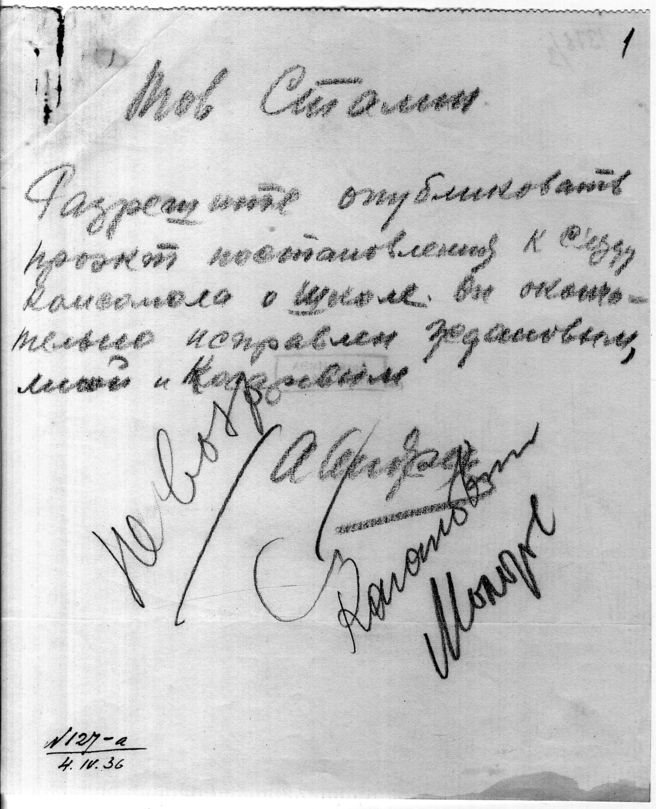 1
Тов Сталин
Разрешите опубликовать
проэкт постановления к съезду
Комсомола о школе. Он оконча-
тельно исправлен Ждановым,
мной и Косаревым
А Андреев
Не возр
Каганович
Молотов
N127-а
4.IV.36